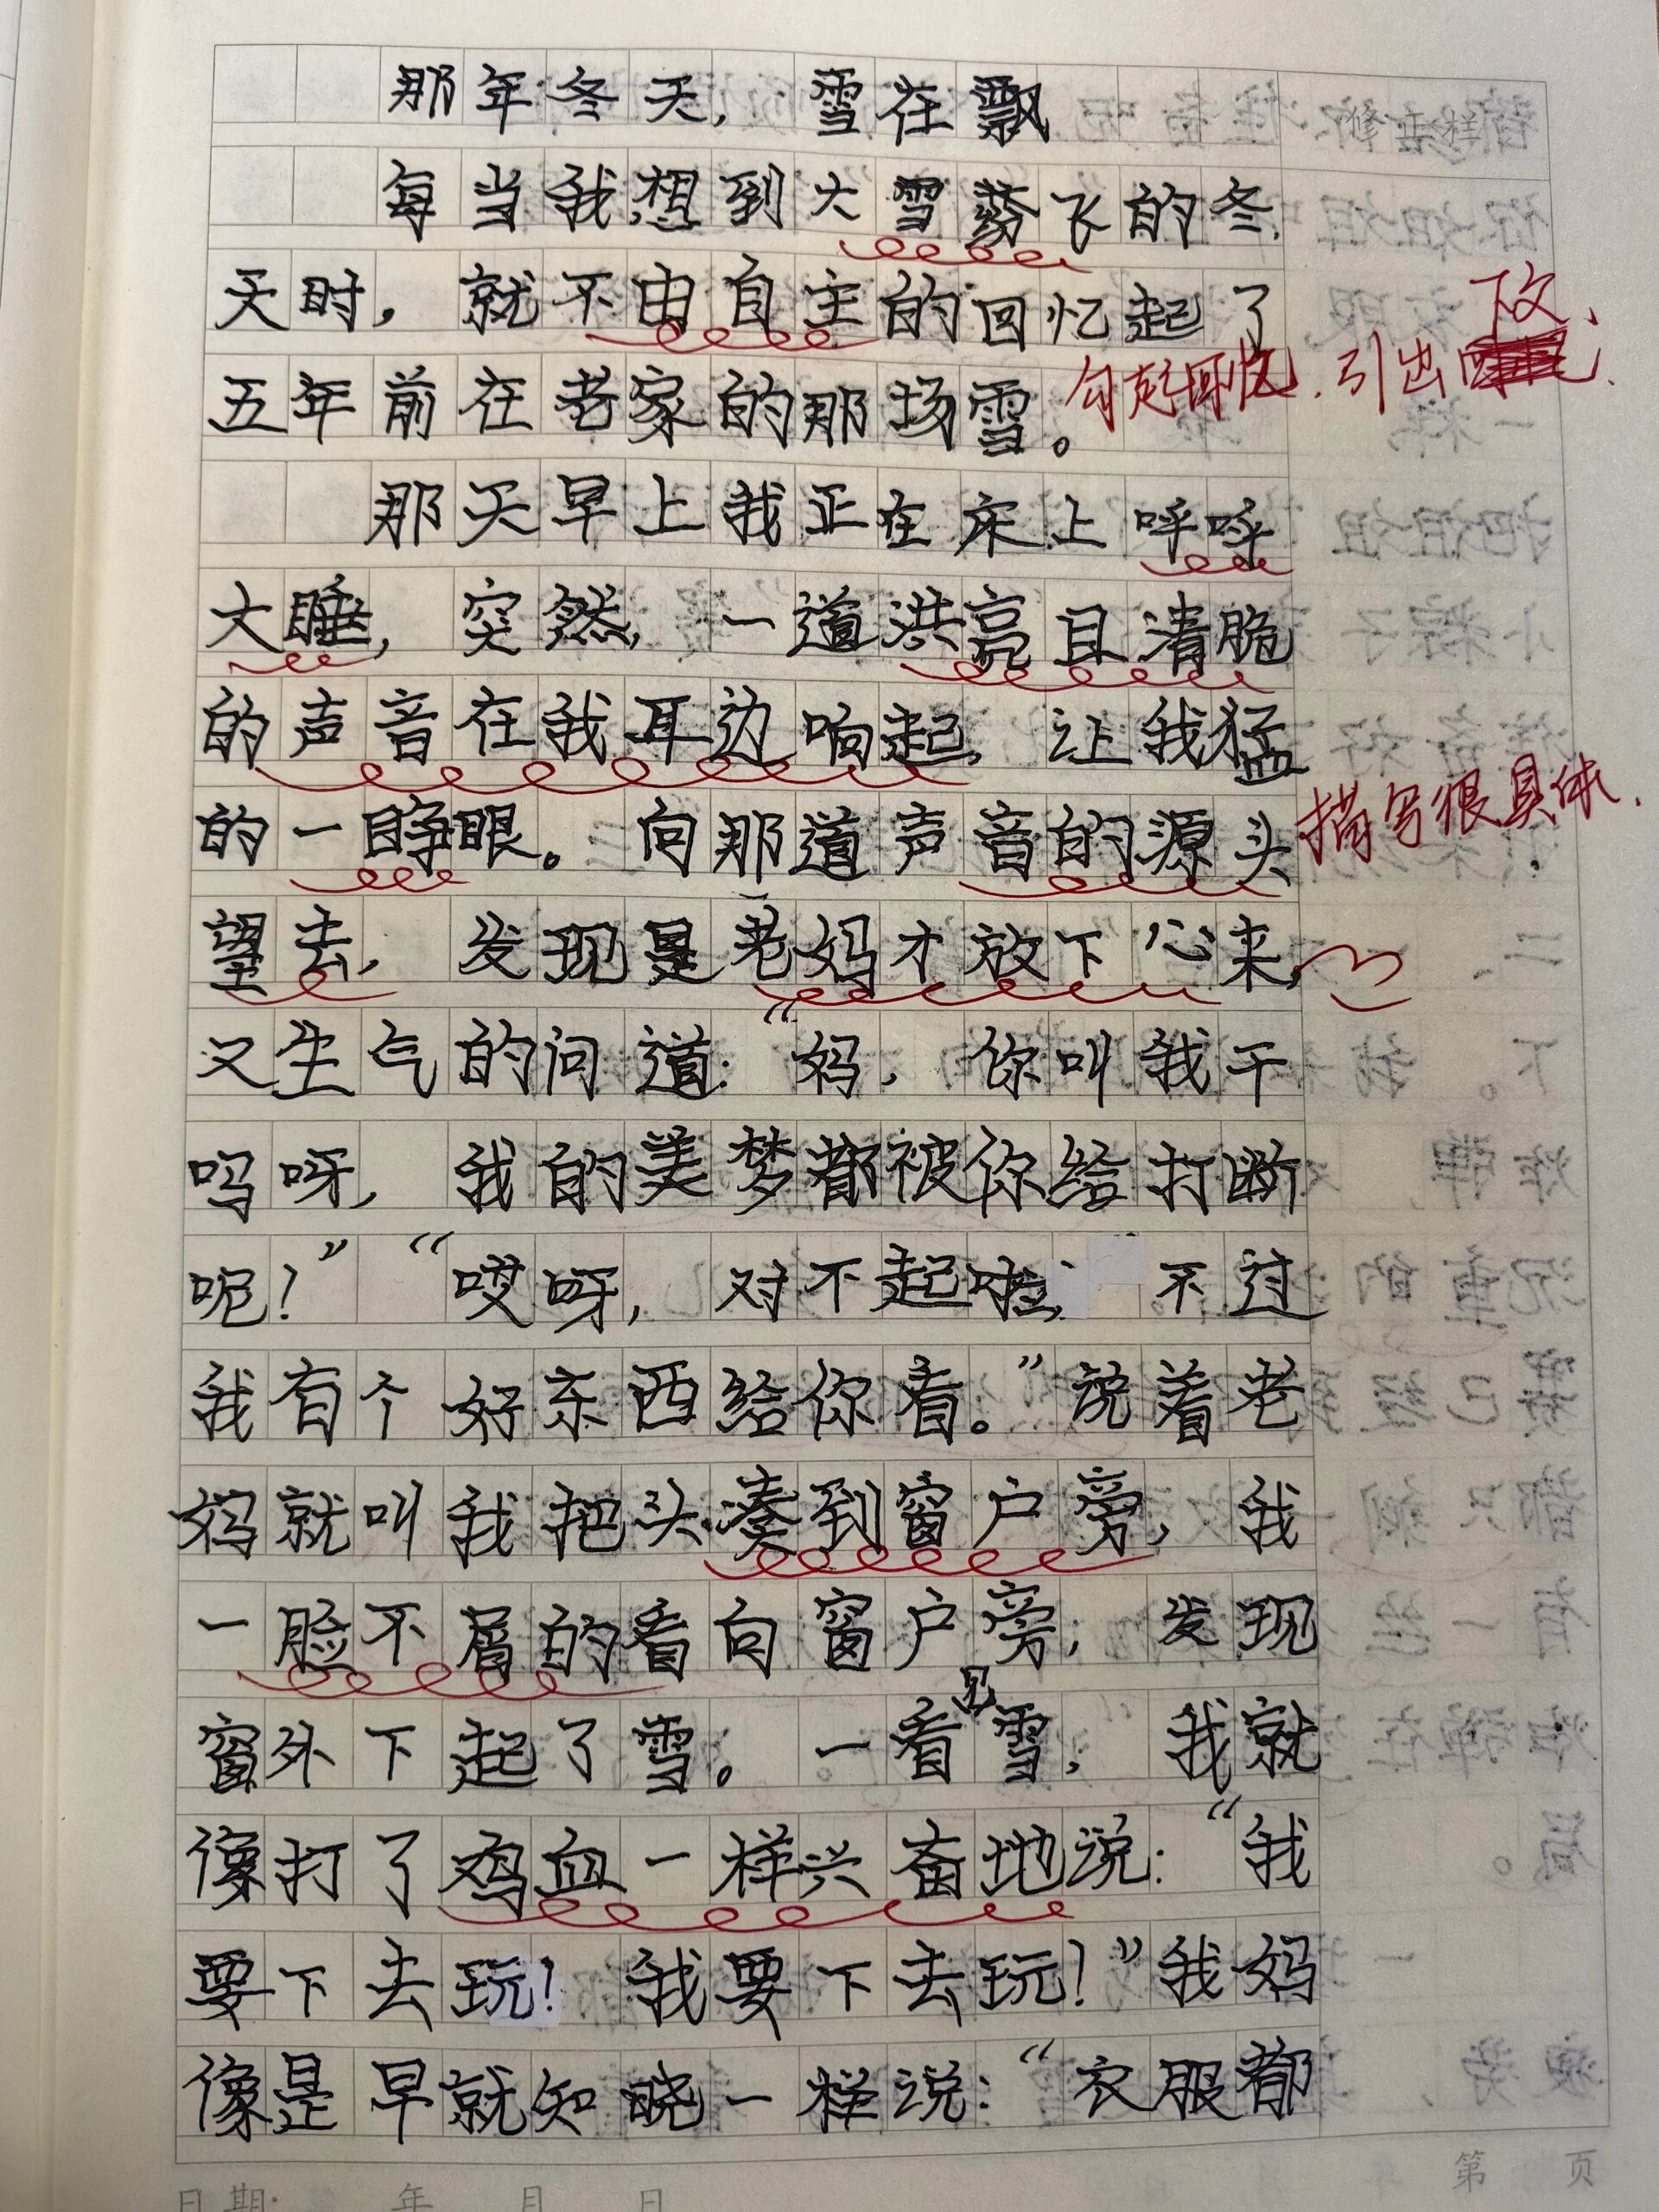 那年冬天,雪在飘
每当我想到大雪纷飞的冬
天时,就不由自主的回忆起了
下文、
五年前在老家的那场雪。
勾起回忆.引出
那天早上我正在床上呼呼
大睡,突然,一道洪亮且清脆
的声音在我耳边响起,让我猛
的一睁眼。向那道声音的源头
描写很具体.
望去,发现是老妈才放下心来,
又生气的问道:“妈,你叫我干
吗呀,我的美梦都被你给打断
呢!”“哎呀,对不起啦,不过
我有个好东西给你看。”说着老
妈就叫我把头凑到窗户旁,我
一脸不屑的看向窗户旁,发现
窗外下起了雪。一看见雪,我就
像打了鸡血一样兴奋地说:“我
要下去玩!我要下去玩!”我妈
像是早就知晓一样说:“衣服都
第 页
日期: 年 月 日